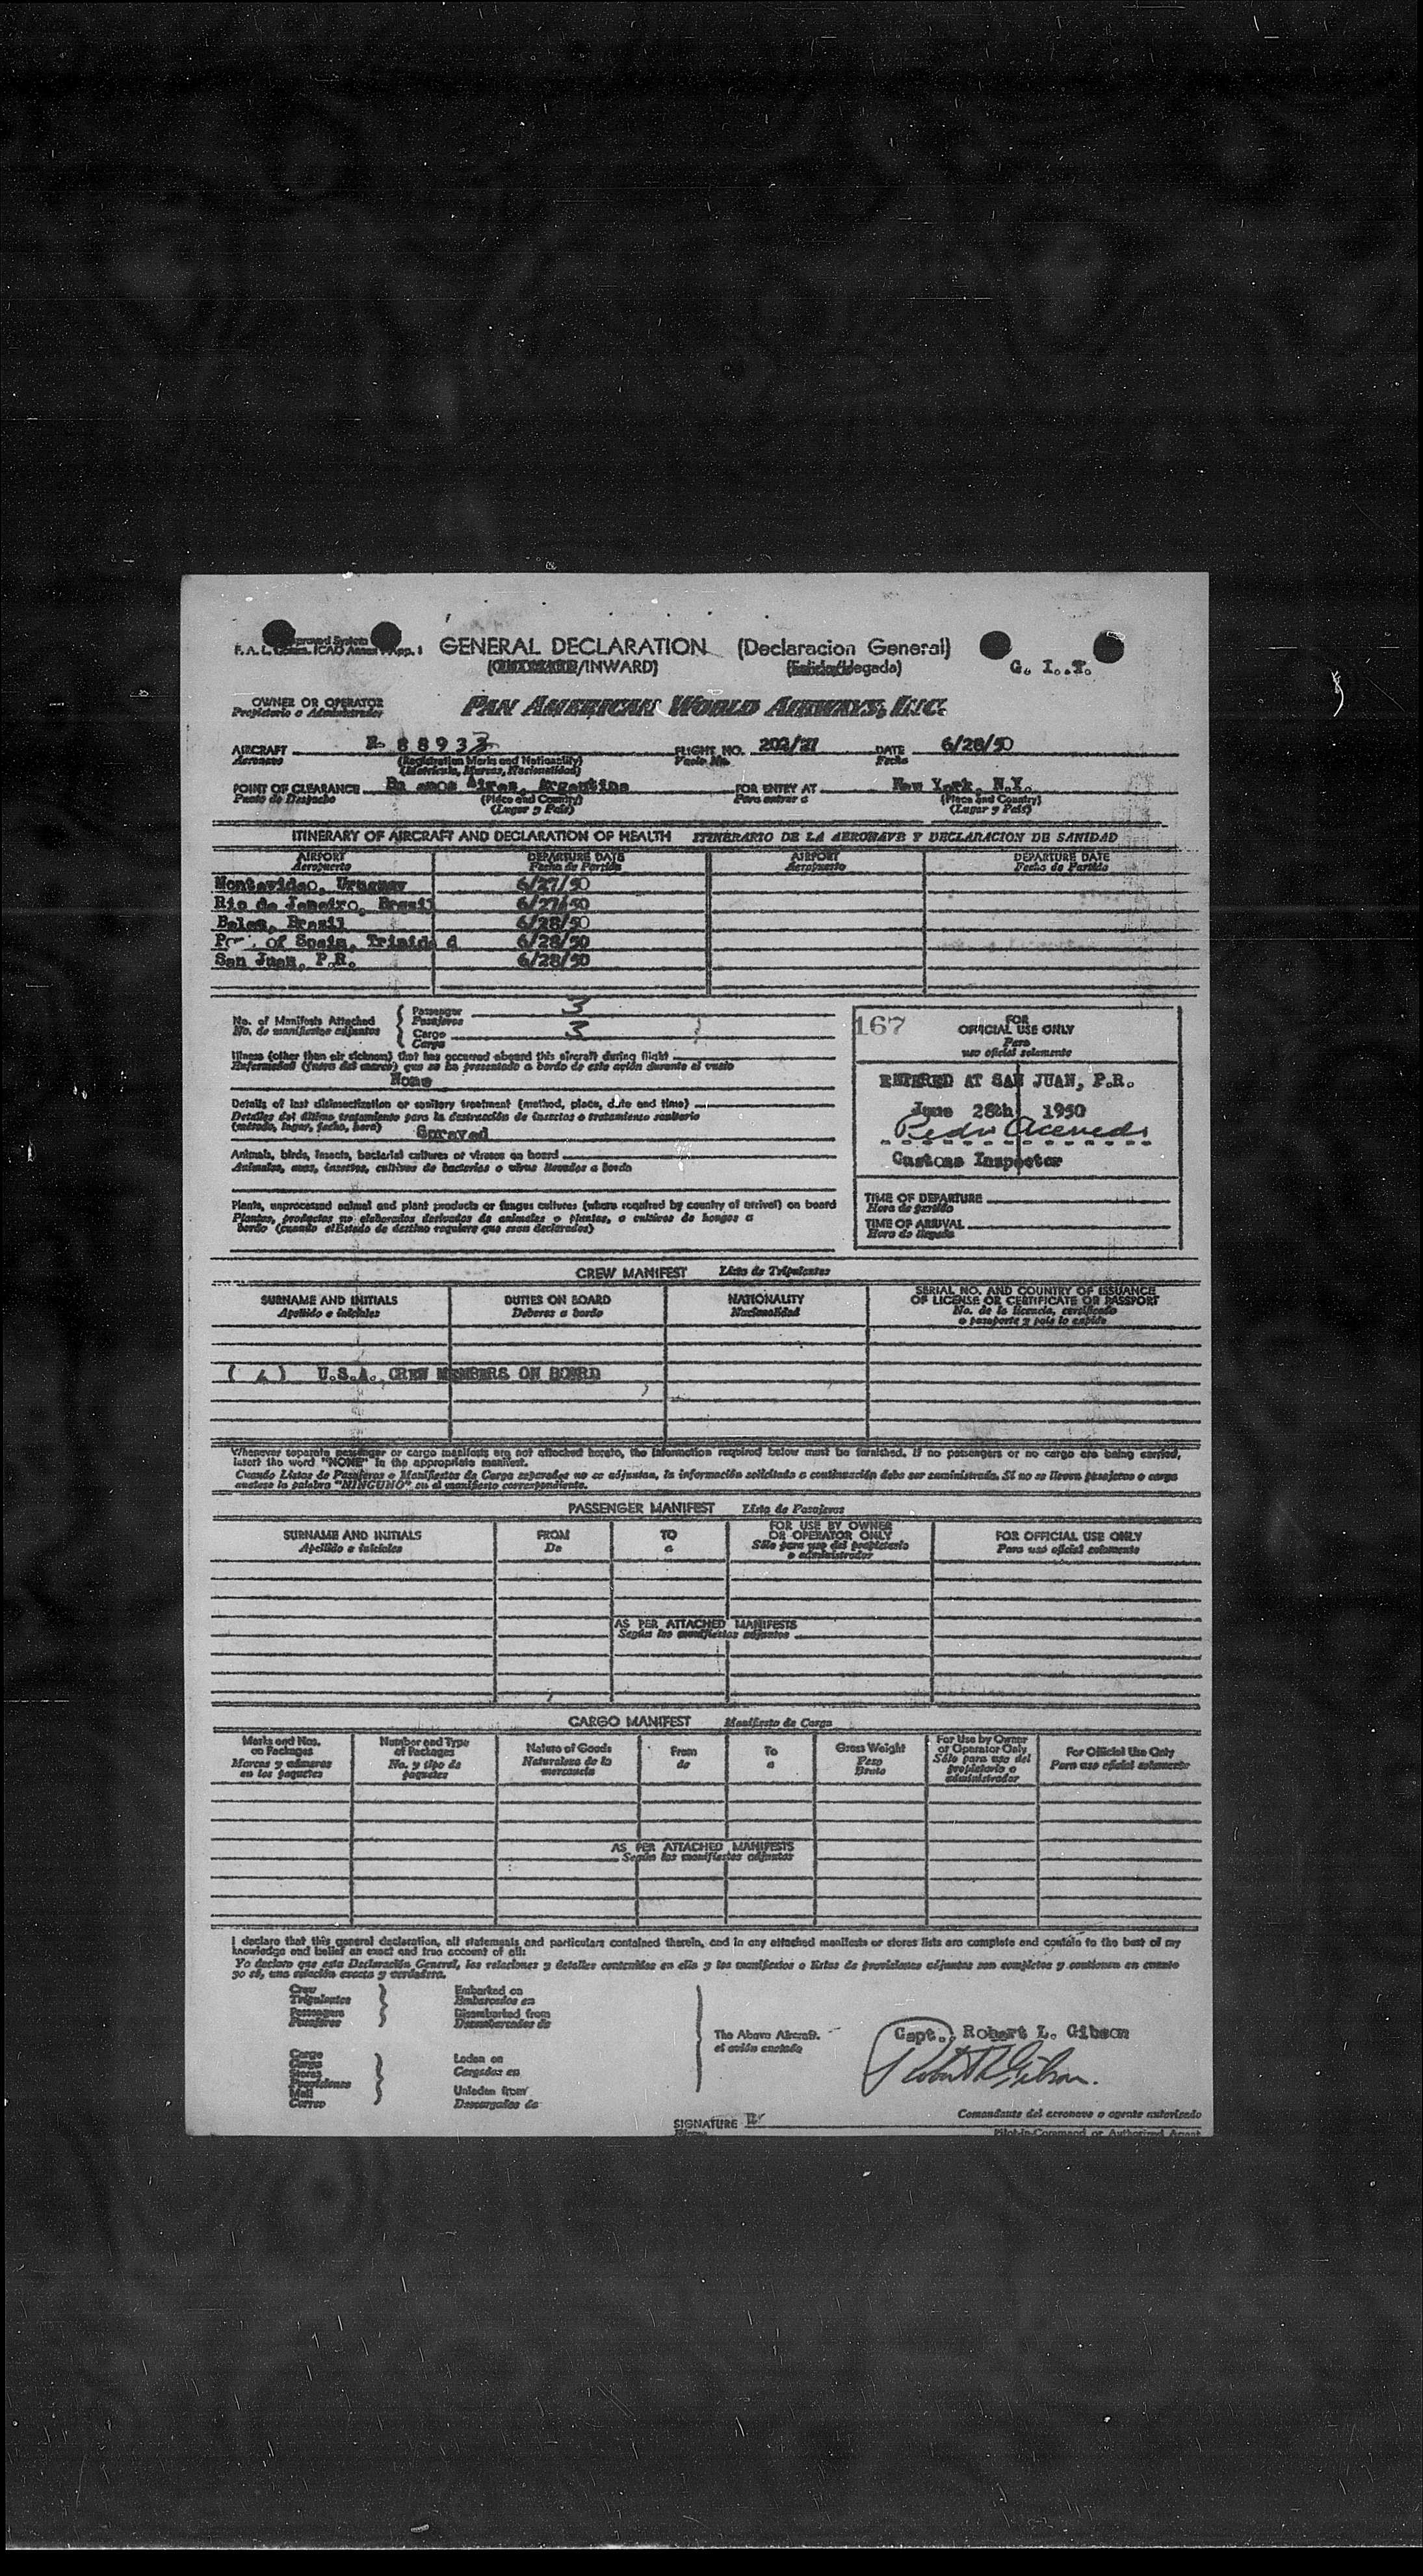 GENERAL DECLARATION (Declaracion General)
F. A. L. ICAO Annex App. 1
/INWARD)
G. I. T.
OWNER OR OPERATOR
Propietario o Administrador
PAN AMERICAN WORLD AIRWAYS, INC.
AIRCRAFT N- 88933 FLIGHT NO. 202/27 DATE 6/28/50
Aeronave (Registration Marks and Nationality) Vuelo No. Fecha
(Matricula, Marcas, Nacionalidad)
POINT OF CLEARANCE Bu enos Aires, Argentina FOR ENTRY AT New York, N.Y.
Punto de Despacho (Place and Country) Para entrar a (Place and Country)
(Lugar y País) (Lugar y País)
ITINERARY OF AIRCRAFT AND DECLARATION OF HEALTH ITINERARIO DE LA AERONAVE Y DECLARACION DE SANIDAD
AIRPORT DEPARTURE DATE AIRPORT DEPARTURE DATE
Aeropuerto Fecha de Partida Aeropuerto Fecha de Partida
Montevideo, Uruguay 6/27/50
Rio de Janeiro, Brazil 6/27/50
Belem, Brazil 6/28/50
of Spain, Trinida d 6/28/50
San Juan, P.R. 6/28/50
No. of Manifests Attached Passenger 3
No. de manifiestos adjuntos Pasajeros
Cargo 3
Carga
Illness (other than air sickness) that has occurred aboard this aircraft during flight
Enfermedad (fuera del mareo) que se ha presentado a bordo de este avión durante el vuelo
None
Details of last disinsectization or sanitary treatment (method, place, date and time)
Detalles del último tratamiento para la destrucción de insectos o tratamiento sanitario
(método, lugar, fecha, hora) Sprayed
Animals, birds, insects, bacterial cultures or viruses on board
Animales, aves, insectos, cultivos de bacterias o virus llevados a bordo
Plants, unprocessed animal and plant products or fungus cultures (where required by country of arrival) on board
Plantas, productos no elaborados derivados de animales o plantas, o cultivos de hongos a
bordo (cuando el Estado de destino requiere que sean declarados)
167 FOR
OFFICIAL USE ONLY
Para
uso oficial solamente
ENTERED AT SAN JUAN, P.R.
June 28th 1950
Pedro Acevedo
Customs Inspector
TIME OF DEPARTURE
Hora de partida
TIME OF ARRIVAL
Hora de llegada
CREW MANIFEST Lista de Tripulantes
SURNAME AND INITIALS DUTIES ON BOARD NATIONALITY SERIAL NO. AND COUNTRY OF ISSUANCE
OF LICENSE OR CERTIFICATE OR PASSPORT
Apellido e iniciales Deberes a bordo Nacionalidad No. de la licencia, certificado
o pasaporte y país lo expide
U.S.A. CREW MEMBERS ON BOARD
Whenever separate passenger or cargo manifests are not attached hereto, the information required below must be furnished. If no passengers or no cargo are being carried,
insert the word "NONE" in the appropriate manifest.
Cuando Listas de Pasajeros o Manifiestos de Carga separados no se adjuntan, la información solicitada a continuación debe ser suministrada. Si no se llevan pasajeros o carga
anótese la palabra "NINGUNO" en el manifiesto correspondiente.
PASSENGER MANIFEST Lista de Pasajeros
SURNAME AND INITIALS FROM TO FOR USE BY OWNER
OR OPERATOR ONLY FOR OFFICIAL USE ONLY
Apellido e iniciales De a Sólo para uso del propietario
o administrador Para uso oficial solamente
AS PER ATTACHED MANIFESTS
Según los manifiestos adjuntos
CARGO MANIFEST Manifiesto de Carga
Marks and Nos.
on Packages
Marcas y números
en los paquetes
Number and Type
of Packages
No. y tipo de
paquetes
Nature of Goods
Naturaleza de la
mercancía
From
de
To
a
Gross Weight
Peso
Bruto
For Use by Owner
or Operator Only
Sólo para uso del
propietario o
administrador
For Official Use Only
Para uso oficial solamente
AS PER ATTACHED MANIFESTS
Según los manifiestos adjuntos
I declare that this general declaration, all statements and particulars contained therein, and in any attached manifests or stores lists are complete and contain to the best of my
knowledge and belief an exact and true account of all:
Yo declaro que esta Declaración General, las relaciones y detalles contenidos en ella y los manifiestos o listas de provisiones adjuntos son completos y contienen en cuanto
yo sé, una relación exacta y verdadera.
Crew Embarked on
Tripulantes Embarcados en
Passengers Disembarked from
Pasajeros Desembarcados de
The Above Aircraft.
el avión anotado
Capt. Robert L. Gibson
Cargo
Carga
Stores
Provisiones
Mail
Correo
Laden on
Cargados en
Unladen from
Descargados de
Robert L Gibson.
SIGNATURE
Comandante del aeronave o agente autorizado
Pilot-in-Command or Authorized Agent